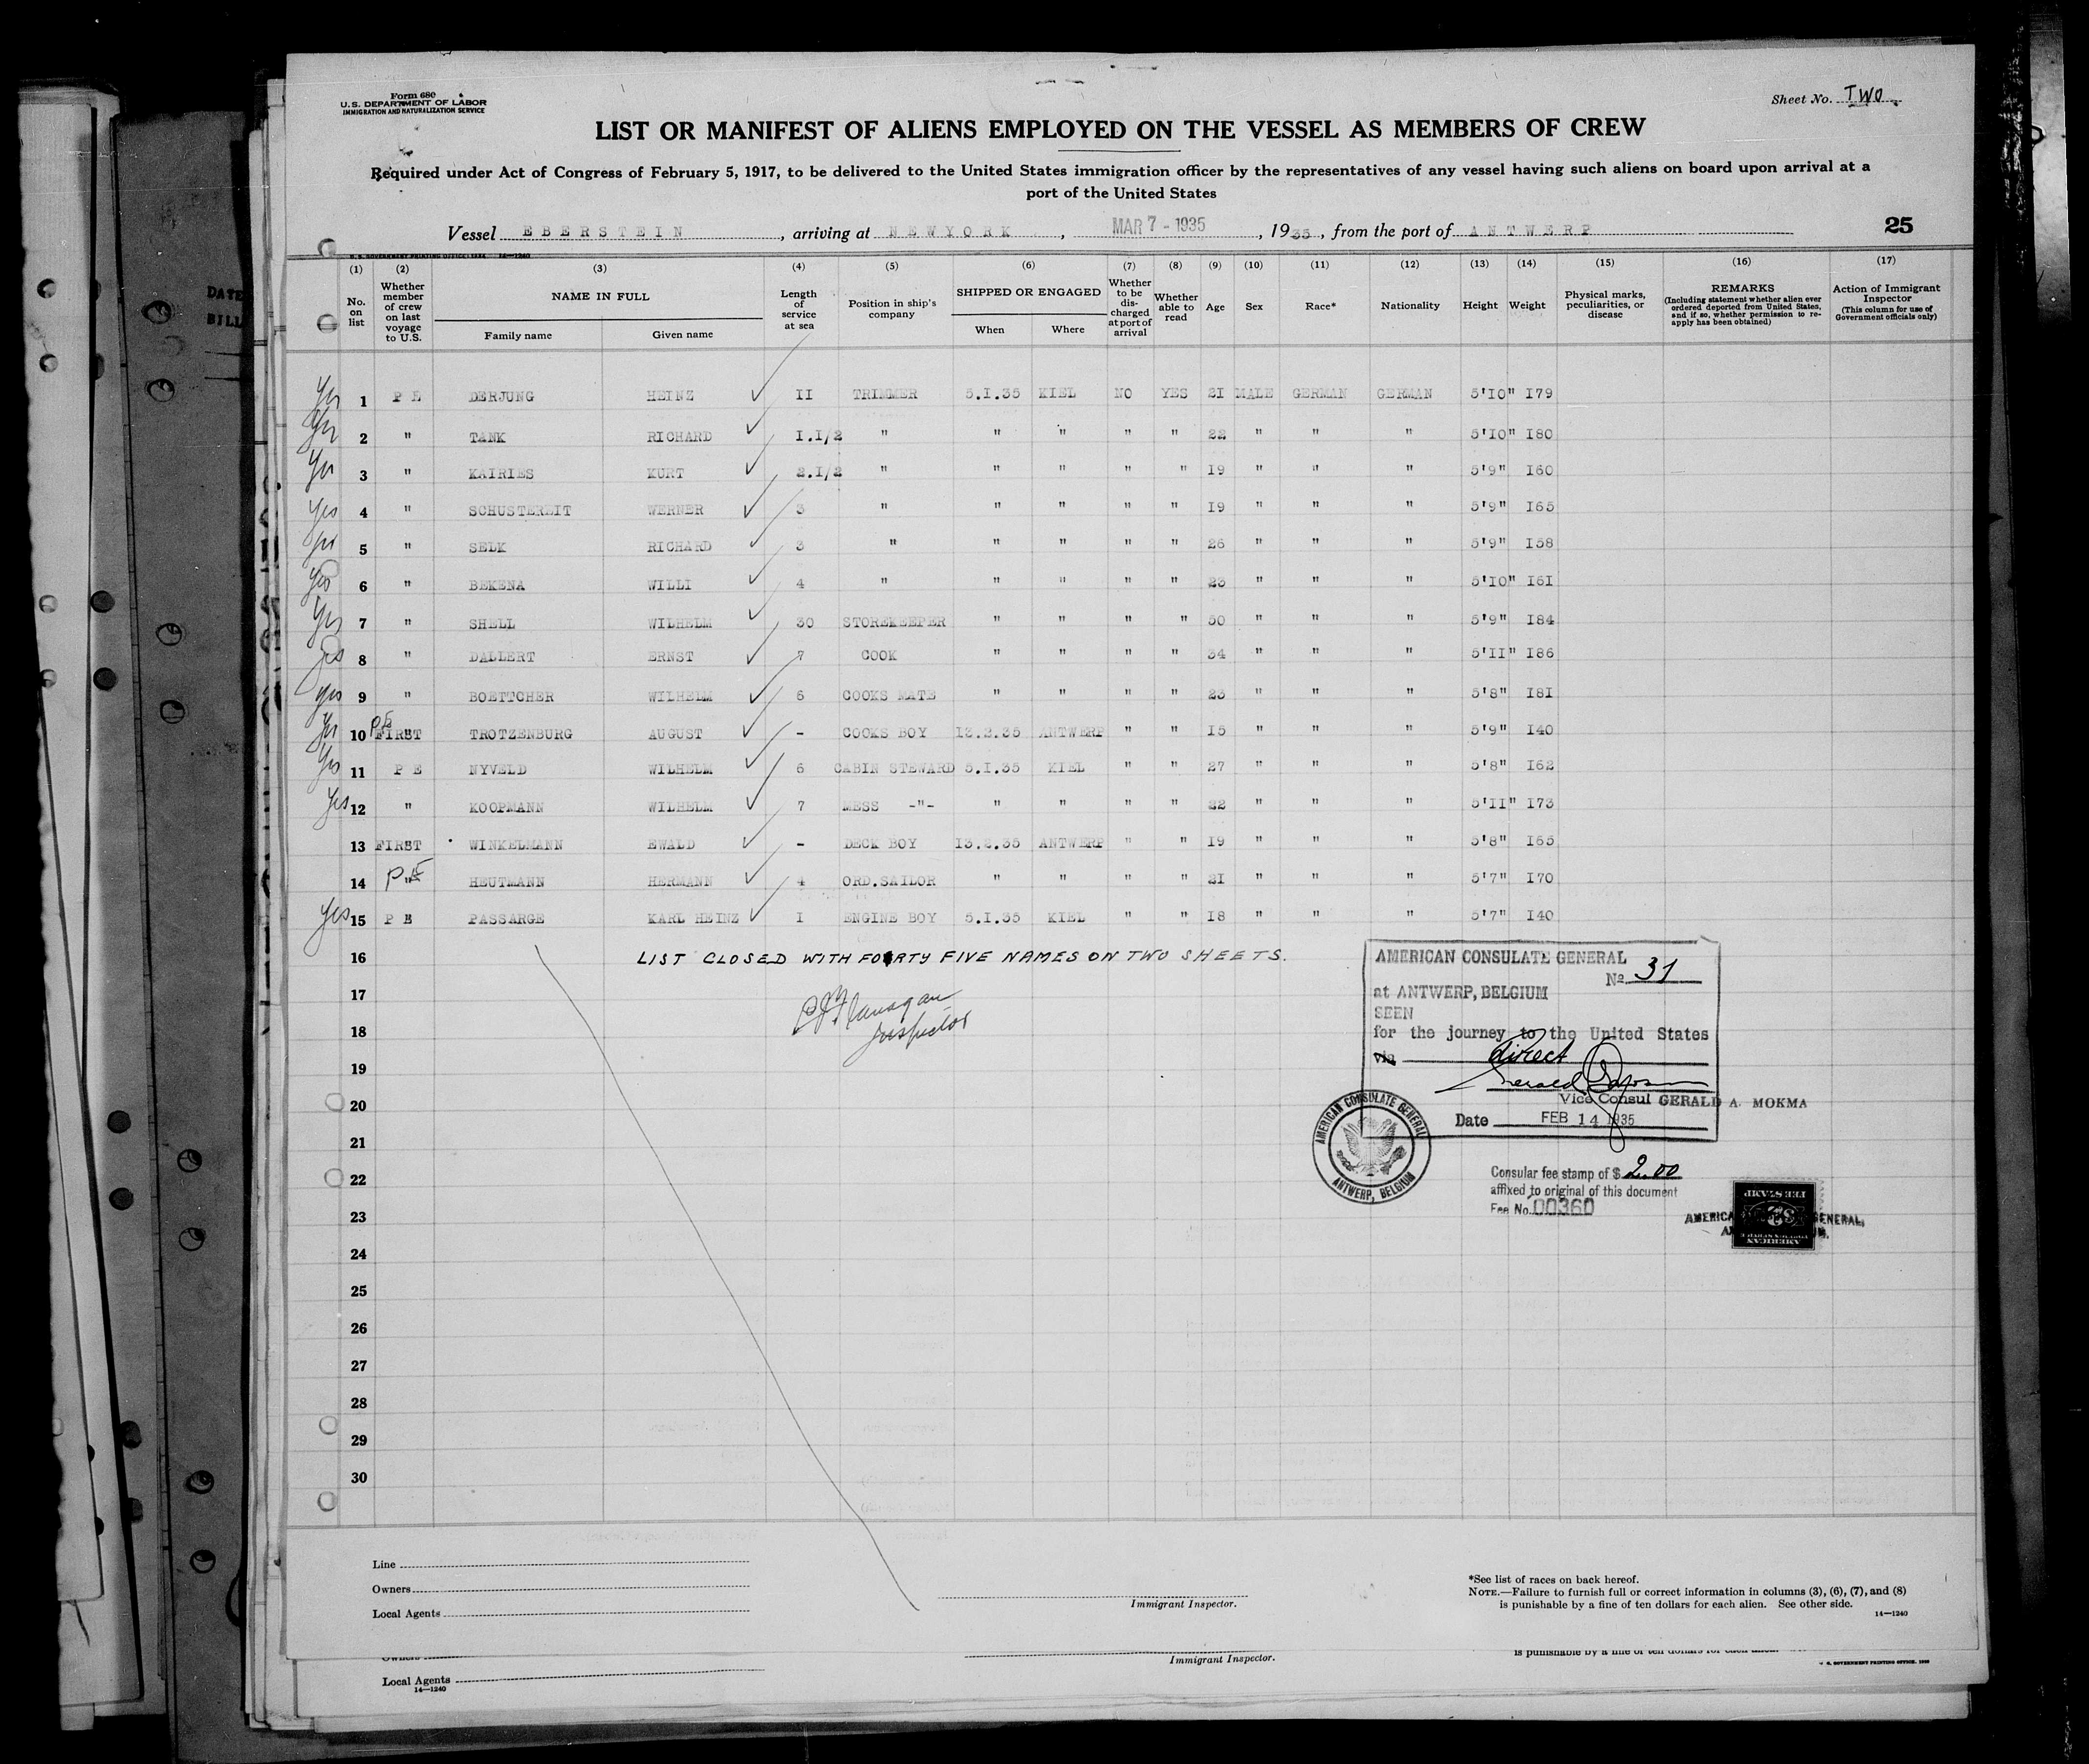 Form 680
U.S. DEPARTMENT OF LABOR
IMMIGRATION AND NATURALIZATION SERVICE
Sheet No. TWO
LIST OR MANIFEST OF ALIENS EMPLOYED ON THE VESSEL AS MEMBERS OF CREW
Required under Act of Congress of February 5, 1917, to be delivered to the United States immigration officer by the representatives of any vessel having such aliens on board upon arrival at a
port of the United States
Vessel EBERSTEIN, arriving at NEWYORK, MAR 7 - 1935, 1935, from the port of ANTWERP 25
(1) (2) (3) (4) (5) (6) (7) (8) (9) (10) (11) (12) (13) (14) (15) (16) (17)
No. on list Whether member of crew on last voyage to U.S. NAME IN FULL Family name Given name Length of service at sea Position in ship's company SHIPPED OR ENGAGED When Where Whether to be discharged at port of arrival Whether able to read Age Sex Race* Nationality Height Weight Physical marks, peculiarities, or disease REMARKS (Including statement whether alien ever ordered deported from United States, and if so, whether permission to re-apply has been obtained) Action of Immigrant Inspector (This column for use of Government officials only)
Yes 1 P E DERJUNG HEINZ II TRIMMER 5.I.35 KIEL NO YES 2I MALE GERMAN GERMAN 5'IO" I79
Yes 2 " TANK RICHARD I.I/2 " " " " " 22 " " " 5'IO" I80
Yes 3 " KAIRIES KURT 2.I/2 " " " " " I9 " " " 5'9" I60
Yes 4 " SCHUSTEREIT WERNER 3 " " " " " I9 " " " 5'9" I65
Yes 5 " SELK RICHARD 3 " " " " " 26 " " " 5'9" I58
Yes 6 " BEKENA WILLI 4 " " " " " 23 " " " 5'IO" I6I
Yes 7 " SHELL WILHELM 30 STOREKEEPER " " " " 50 " " " 5'9" I84
Yes 8 " DALLERT ERNST 7 COOK " " " " 34 " " " 5'II" I86
Yes 9 " BOETTCHER WILHELM 6 COOKS MATE " " " " 23 " " " 5'8" I8I
Yes 10 PE FIRST TROTZENBURG AUGUST - COOKS BOY I3.2.35 ANTWERP " " I5 " " " 5'9" I40
Yes 11 P E NYVELD WILHELM 6 CABIN STEWARD 5.I.35 KIEL " " 27 " " " 5'8" I62
Yes 12 " KOOPMANN WILHELM 7 MESS -"- " " " " 22 " " " 5'II" I73
13 FIRST WINKELMANN EWALD - DECK BOY I3.2.35 ANTWERP " " I9 " " " 5'8" I55
14 PE " HEUTMANN HERMANN 4 ORD.SAILOR " " " " 2I " " " 5'7" I70
Yes 15 P E PASSARGE KARL HEINZ I ENGINE BOY 5.I.35 KIEL " " I8 " " " 5'7" I40
16 LIST CLOSED WITH FORTY FIVE NAMES ON TWO SHEETS.
17
18 Inspector
19
20
21
22
23
24
25
26
27
28
29
30
AMERICAN CONSULATE GENERAL
No 31
at ANTWERP, BELGIUM
SEEN
for the journey to the United States
via direct
Vice Consul GERALD A. MOKMA
Date FEB 14 1935
AMERICAN CONSULATE GENERAL
ANTWERP, BELGIUM
Consular fee stamp of $ 2.00
affixed to original of this document
Fee No. 00360
Line
Owners
Local Agents
Immigrant Inspector.
*See list of races on back hereof.
NOTE.—Failure to furnish full or correct information in columns (3), (6), (7), and (8)
is punishable by a fine of ten dollars for each alien. See other side.
14—1240
Immigrant Inspector.
Local Agents
14—1240